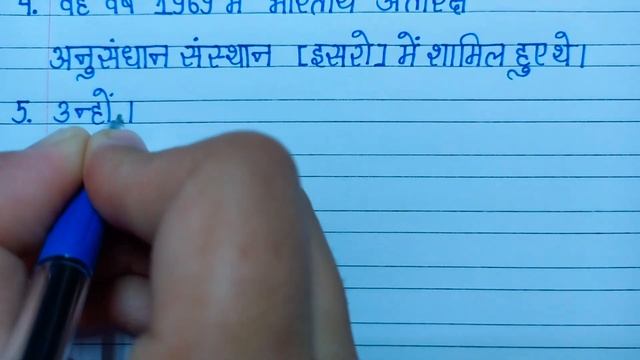 4. वह वर्ष 1969 में भारतीय अंतरिक्ष
अनुसंधान संस्थान [इसरो] में शामिल हुए थे।
5. उन्हों